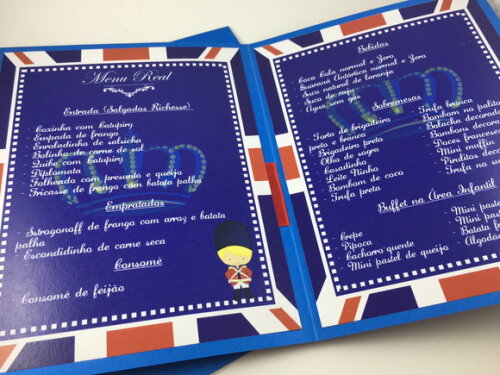 Menu Real
Entrada (Salgados Richesse)
- Coxinha com Catupiry
- Empada de frango
- Enroladinho de salsicha
- Bolinho de carne de sol
- Quibe com Catupiry
- Diplomata
- Folheado com presunto e queijo
- Fricasse de frango com batata palha
Empratados
- Strogonoff de frango com arroz e batata
palha
- Escondidinho de carne seca
Consomê
Consomê de feijão
Bebidas
- Coca Cola normal e Zero
- Guaraná Antártica normal e Zero
- Suco natural de laranja
- Suco de caju
- Água sem gás
Sobremesas
- Torta de brigadeiro
preto e branco
- Brigadeiro preto
- Olho de sogra
- Casadinho
- Leite Ninho
- Bombom de coco
- Trufa preta
- Trufa branca
- Bombom no
- Bolacha
- Bombons
- Doces
- Mini muffin
- Pirulitos
- Trufa no
Buffet na Área Infantil
- Crepe
- Pipoca
- Cachorro quente
- Mini pastel de queijo
- Mini
- Mini
- Batata